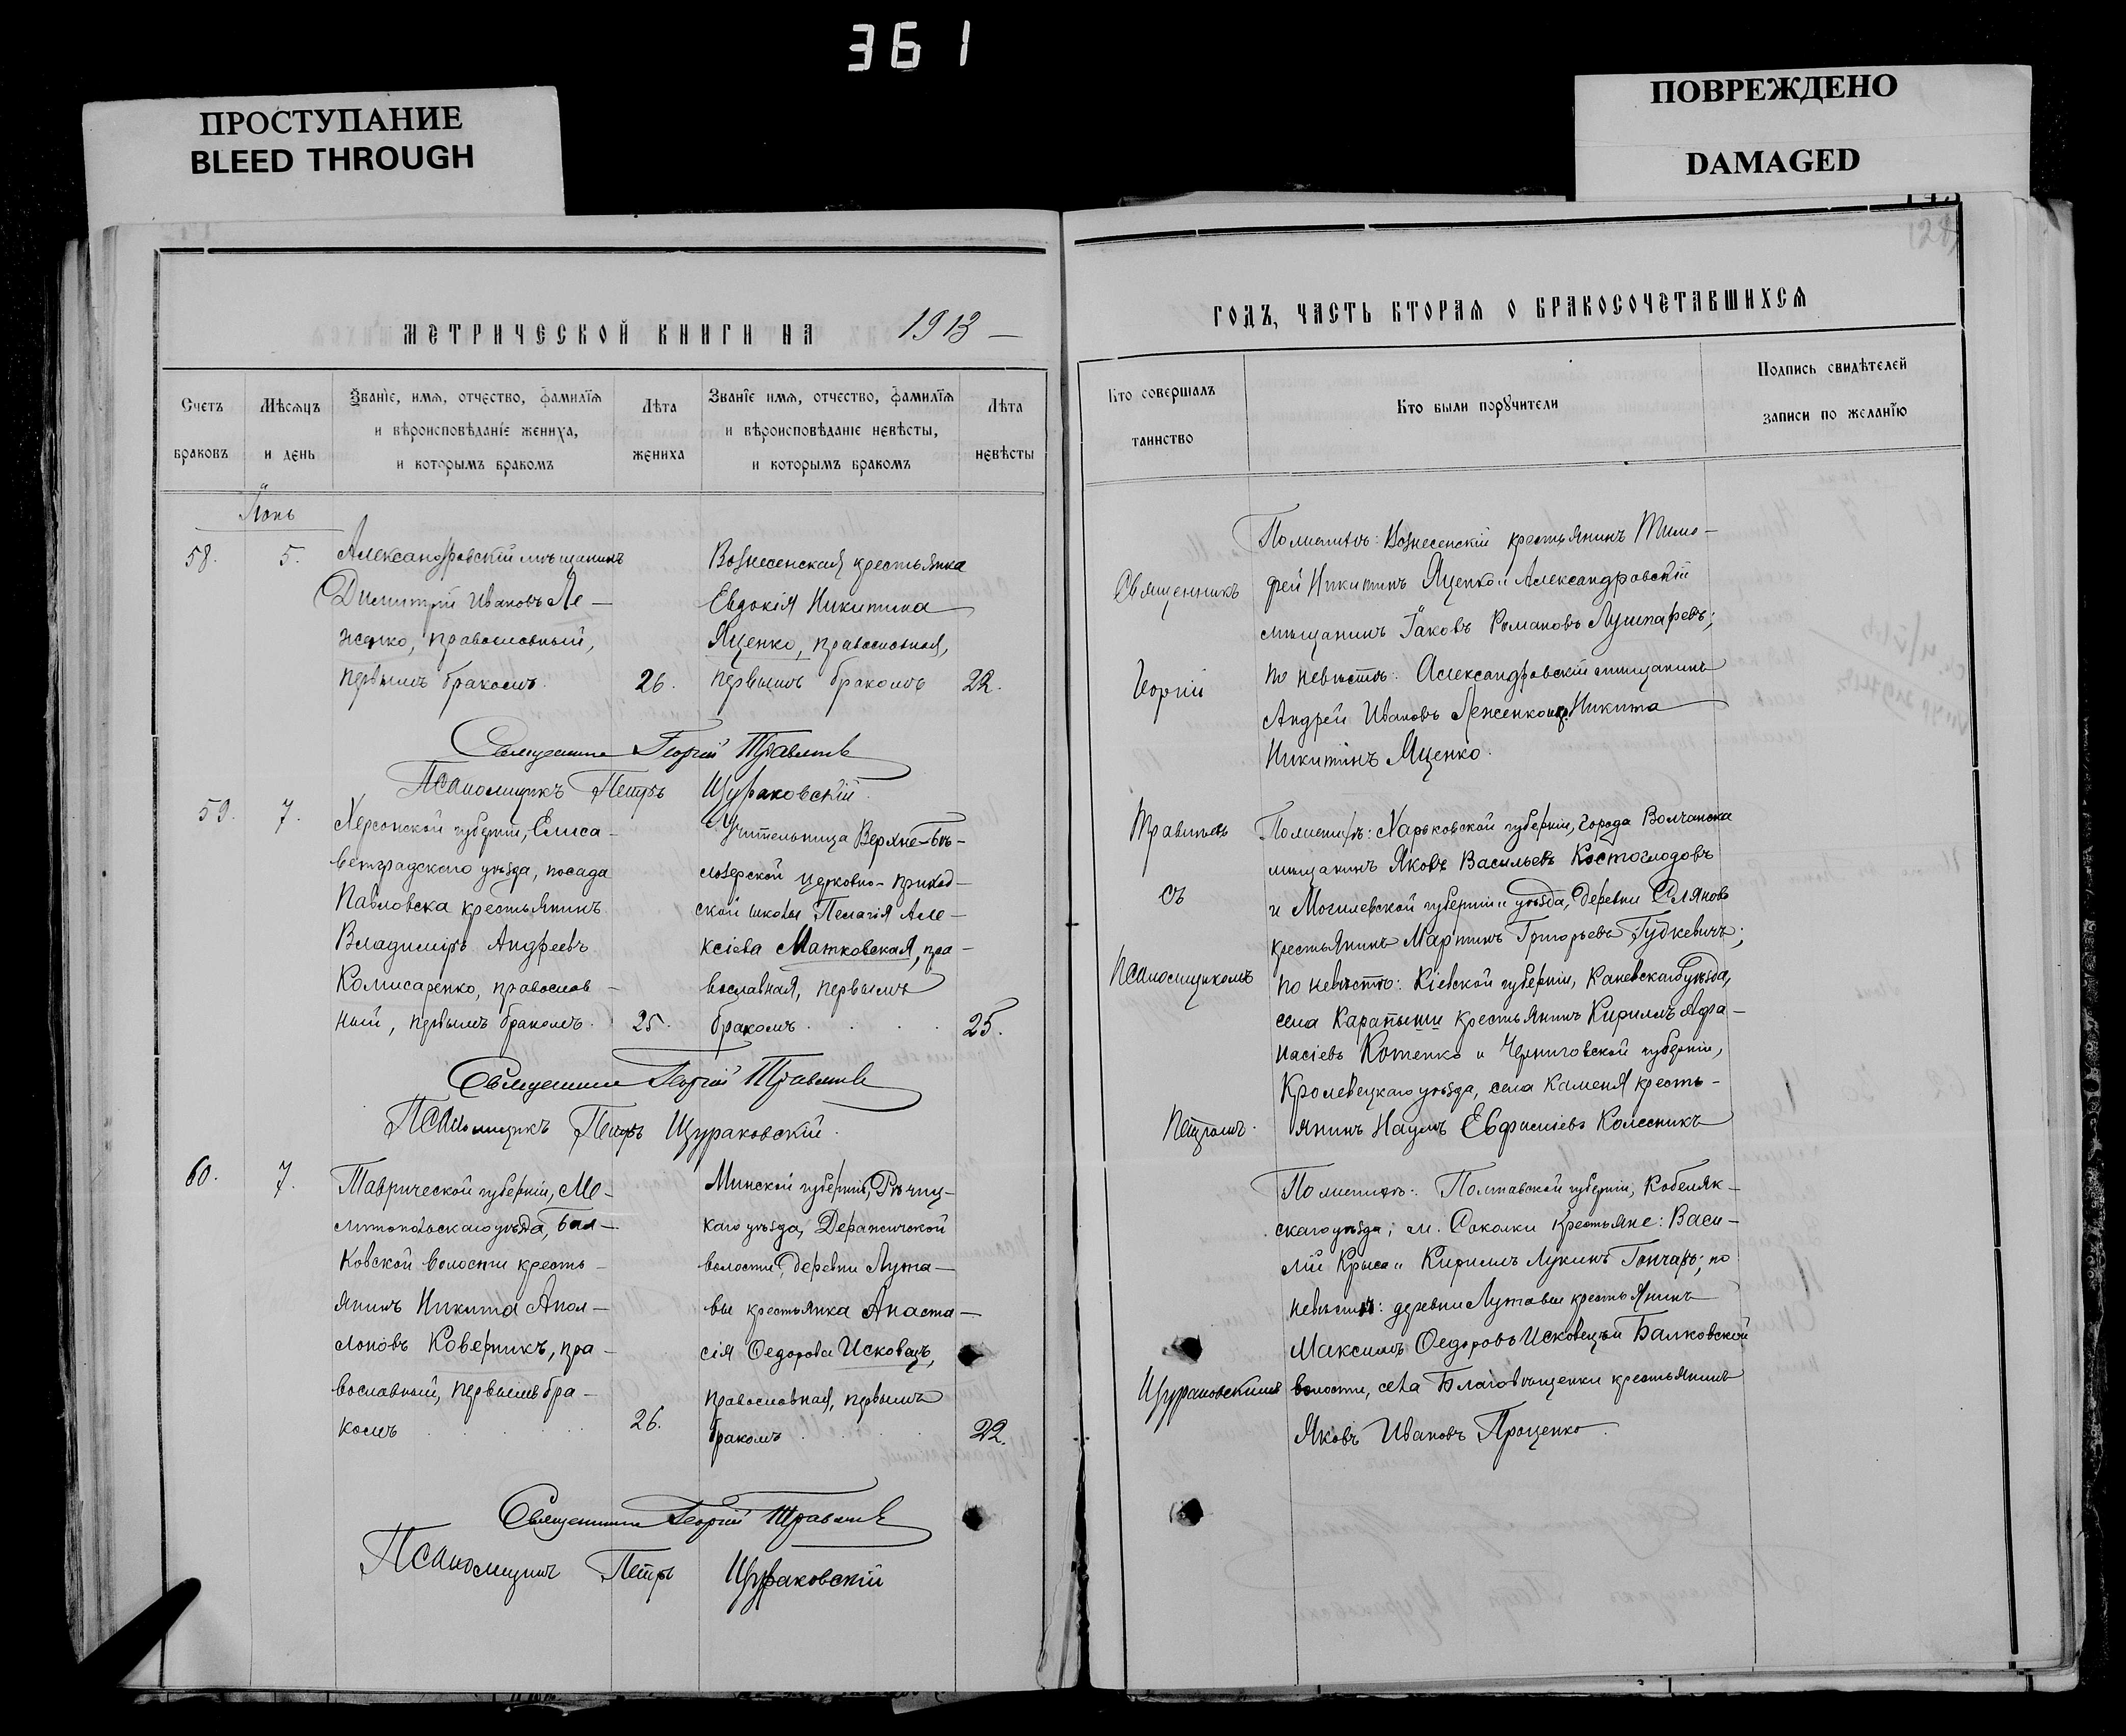 361
ПРОСТУПАНИЕ
BLEED THROUGH
ПОВРЕЖДЕНО
DAMAGED
МЕТРИЧЕСКОЙ КНИГИ НА 1913 —
Счетъ браковъ
Мѣсяцъ и день
Званіе, имя, отчество, фамилія
и вѣроисповѣданіе жениха,
и которымъ бракомъ
Лѣта жениха
Званіе имя, отчество, фамилія
и вѣроисповѣданіе невѣсты,
и которымъ бракомъ
Лѣта невѣсты
Іюнь
58. 5.
Александровскій мѣщанинъ
Димитрій Ивановъ Ле-
женко, православный,
первымъ бракомъ. 26.
Вознесенская крестьянка
Евдокія Никитина
Яценко, православная,
первымъ бракомъ 22.
Священникъ Георгій Травинъ
Псаломщикъ Петръ Щураковскій.
59. 7.
Херсонской губерніи, Елиса-
ветградскаго уѣзда, посада
Павловска крестьянинъ
Владиміръ Андреевъ
Комисаренко, православ-
ный, первымъ бракомъ. 25.
Учительница Верхне-Бѣ-
лозерской церковно-приход-
ской школы Пелагія Але-
ксіева Матковская, пра-
вославная, первымъ
бракомъ 25.
Священникъ Георгій Травинъ
Псаломщикъ Петръ Щураковскій.
60. 7.
Таврической губерніи, Ме-
литопольскаго уѣзда, Бал-
ковской волости кресть-
янинъ Никита Апол-
лоновъ Коверникъ, пра-
вославный, первымъ бра-
комъ 26.
Минской губерніи, Рѣчиц-
каго уѣзда, Деражичской
волости, деревни Лута-
вы крестьянка Анаста-
сія Ѳедорова Исковецъ,
православная, первымъ
бракомъ 22.
Священникъ Георгій Травинъ
Псаломщикъ Петръ Щураковскій
ГОДЪ, ЧАСТЬ ВТОРАЯ О БРАКОСОЧЕТАВШИХСЯ
Кто совершалъ
таинство
Кто были поручители
Подпись свидѣтелей
записи по желанію
Священникъ
Георгій
Травинъ
съ
Псаломщикомъ
Петромъ
Щураковскимъ
По женихѣ: Вознесенскій крестьянинъ Тимо-
фей Никитинъ Яценко и Александровскій
мѣщанинъ Іаковъ Романовъ Лушпаревъ;
по невѣстѣ: Александровскій мѣщанинъ
Андрей Ивановъ Леженко и Никита
Никитинъ Яценко.
По женихѣ: Харьковской губерніи, города Волчанска
мѣщанинъ Яковъ Васильевъ Костоглодовъ
и Могилевской губерніи и уѣзда, деревни
крестьянинъ Мартинъ Григорьевъ Гудкевичъ;
по невѣстѣ: Кіевской губерніи, Каневскаго уѣзда,
села Карапыши крестьянинъ Кириллъ Афа-
насіевъ Котенко и Черниговской губерніи,
Кролевецкаго уѣзда, села Каменя кресть-
янинъ Наумъ Евфиміевъ Колесникъ
По женихѣ: Полтавской губерніи, Кобеляк-
скаго уѣзда; м. Соколки крестьяне: Васи-
лій Крыса и Кириллъ Лукинъ Гончаръ; по
невѣстѣ: деревни Лутавы крестьянинъ
Максимъ Ѳедоровъ Исковецъ и Балковской
волости, села Благовѣщенки крестьянинъ
Яковъ Ивановъ Проценко.